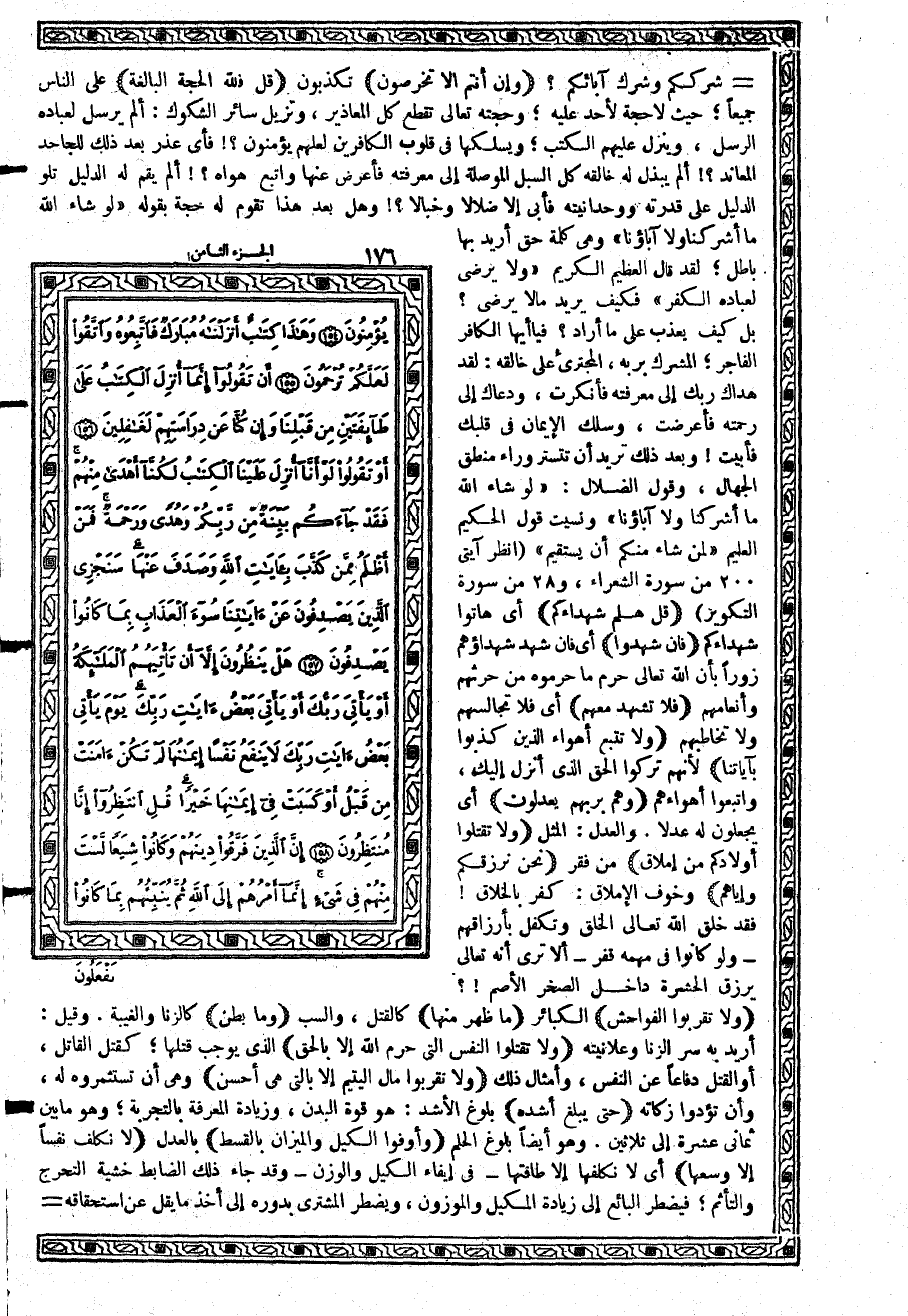 = شرككم وشرك آبائكم ؟ (وإن أنتم الا تخرصون) تكذبون (قل فلله الحجة البالغة) على الناس
جميعاً ؛ حيث لاحجة لأحد عليه ؛ وحجته تعالى تقطع كل المعاذير ، وتزيل سائر الشكوك : ألم يرسل لعباده
الرسل ، وينزل عليهم الكتب ؛ ويسلكها فى قلوب الكافرين لعلهم يؤمنون ؟! فأى عذر بعد ذلك للجاحد
المعاند ؟! ألم يبذل له خالقه كل السبل الموصلة إلى معرفته فأعرض عنها واتبع هواه ؟! ألم يقم له الدليل تلو
الدليل على قدرته ووحدانيته فأبى إلا ضلالا وخبالا ؟! وهل بعد هذا تقوم له حجة بقوله «لو شاء الله
ما أشركنا ولا آباؤنا» وهى كلمة حق أريد بها
باطل ؛ لقد قال العظيم الكريم «ولا يرضى
لعباده الكفر» فكيف يريد مالا يرضى ؟
بل كيف يعذب على ما أراد ؟ فياأيها الكافر
الفاجر ؛ المشرك بربه ، المجترئ على خالقه : لقد
هداك ربك إلى معرفته فأنكرت ، ودعاك إلى
رحمته فأعرضت ، وسلك الإيمان فى قلبك
فأبيت ! وبعد ذلك تريد أن تتستر وراء منطق
الجهال ، وقول الضلال : «لو شاء الله
ما أشركنا ولا آباؤنا» ونسيت قول الحكيم
العليم «لمن شاء منكم أن يستقيم» (انظر آيتى
٢٠٠ من سورة الشعراء ، و٢٨ من سورة
التكوير) (قل هلم شهداءكم) أى هاتوا
شهداءكم (فان شهدوا) أى فان شهد شهداؤهم
زوراً بأن الله تعالى حرم ما حرموه من حرثهم
وأنعامهم (فلا تشهد معهم) أى فلا تجالسهم
ولا تخاطبهم (ولا تتبع أهواء الذين كذبوا
بآياتنا) لأنهم تركوا الحق الذى أنزل إليك ،
واتبعوا أهواءهم (وهم بربهم يعدلون) أى
يجعلون له عدلا . والعدل : المثل (ولا تقتلوا
أولادكم من إملاق) من فقر (نحن نرزقكم
وإياهم) وخوف الإملاق : كفر بالخلاق !
فقد خلق الله تعالى الخلق وتكفل بأرزاقهم
– ولو كانوا فى مهمه قفر – ألا ترى أنه تعالى
يرزق الحشرة داخل الصخر الأصم ! ؟
١٧٦ الجزء الثامن
يُؤْمِنُونَ ﴿١٥٤﴾ وَهَٰذَا كِتَٰبٌ أَنزَلْنَٰهُ مُبَارَكٌ فَٱتَّبِعُوهُ وَٱتَّقُوا۟
لَعَلَّكُمْ تُرْحَمُونَ ﴿١٥٥﴾ أَن تَقُولُوٓا۟ إِنَّمَآ أُنزِلَ ٱلْكِتَٰبُ عَلَىٰ
طَآئِفَتَيْنِ مِن قَبْلِنَا وَإِن كُنَّا عَن دِرَاسَتِهِمْ لَغَٰفِلِينَ ﴿١٥٦﴾
أَوْ تَقُولُوا۟ لَوْ أَنَّآ أُنزِلَ عَلَيْنَا ٱلْكِتَٰبُ لَكُنَّآ أَهْدَىٰ مِنْهُمْ ۚ
فَقَدْ جَآءَكُم بَيِّنَةٌ مِّن رَّبِّكُمْ وَهُدًى وَرَحْمَةٌ ۚ فَمَنْ
أَظْلَمُ مِمَّن كَذَّبَ بِـَٔايَٰتِ ٱللَّهِ وَصَدَفَ عَنْهَا ۗ سَنَجْزِى
ٱلَّذِينَ يَصْدِفُونَ عَنْ ءَايَٰتِنَا سُوٓءَ ٱلْعَذَابِ بِمَا كَانُوا۟
يَصْدِفُونَ ﴿١٥٧﴾ هَلْ يَنظُرُونَ إِلَّآ أَن تَأْتِيَهُمُ ٱلْمَلَٰٓئِكَةُ
أَوْ يَأْتِىَ رَبُّكَ أَوْ يَأْتِىَ بَعْضُ ءَايَٰتِ رَبِّكَ ۗ يَوْمَ يَأْتِى
بَعْضُ ءَايَٰتِ رَبِّكَ لَا يَنفَعُ نَفْسًا إِيمَٰنُهَا لَمْ تَكُنْ ءَامَنَتْ
مِن قَبْلُ أَوْ كَسَبَتْ فِىٓ إِيمَٰنِهَا خَيْرًا ۗ قُلِ ٱنتَظِرُوٓا۟ إِنَّا
مُنتَظِرُونَ ﴿١٥٨﴾ إِنَّ ٱلَّذِينَ فَرَّقُوا۟ دِينَهُمْ وَكَانُوا۟ شِيَعًا لَّسْتَ
مِنْهُمْ فِى شَىْءٍ ۚ إِنَّمَآ أَمْرُهُمْ إِلَى ٱللَّهِ ثُمَّ يُنَبِّئُهُم بِمَا كَانُوا۟
يَفْعَلُونَ
(ولا تقربوا الفواحش) الكبائر (ما ظهر منها) كالقتل ، والسب (وما بطن) كالزنا والغيبة . وقيل :
أريد به سر الزنا وعلانيته (ولا تقتلوا النفس التى حرم الله إلا بالحق) الذى يوجب قتلها ؛ كقتل القاتل ،
أوالقتل دفاعاً عن النفس ، وأمثال ذلك (ولا تقربوا مال اليتيم إلا بالتى هى أحسن) وهى أن تستثمروه له ،
وأن تؤدوا زكاته (حتى يبلغ أشده) بلوغ الأشد : هو قوة البدن ، وزيادة المعرفة بالتجربة ؛ وهو مابين
ثمانى عشرة إلى ثلاثين . وهو أيضاً بلوغ الحلم (وأوفوا الكيل والميزان بالقسط) بالعدل (لا نكلف نفساً
إلا وسعها) أى لا نكلفها إلا طاقتها – فى إيفاء الكيل والوزن – وقد جاء ذلك الضابط خشية التحرج
والتأثم ؛ فيضطر البائع إلى زيادة المكيل والموزون ، ويضطر المشترى بدوره إلى أخذ مايقل عن استحقاقه =